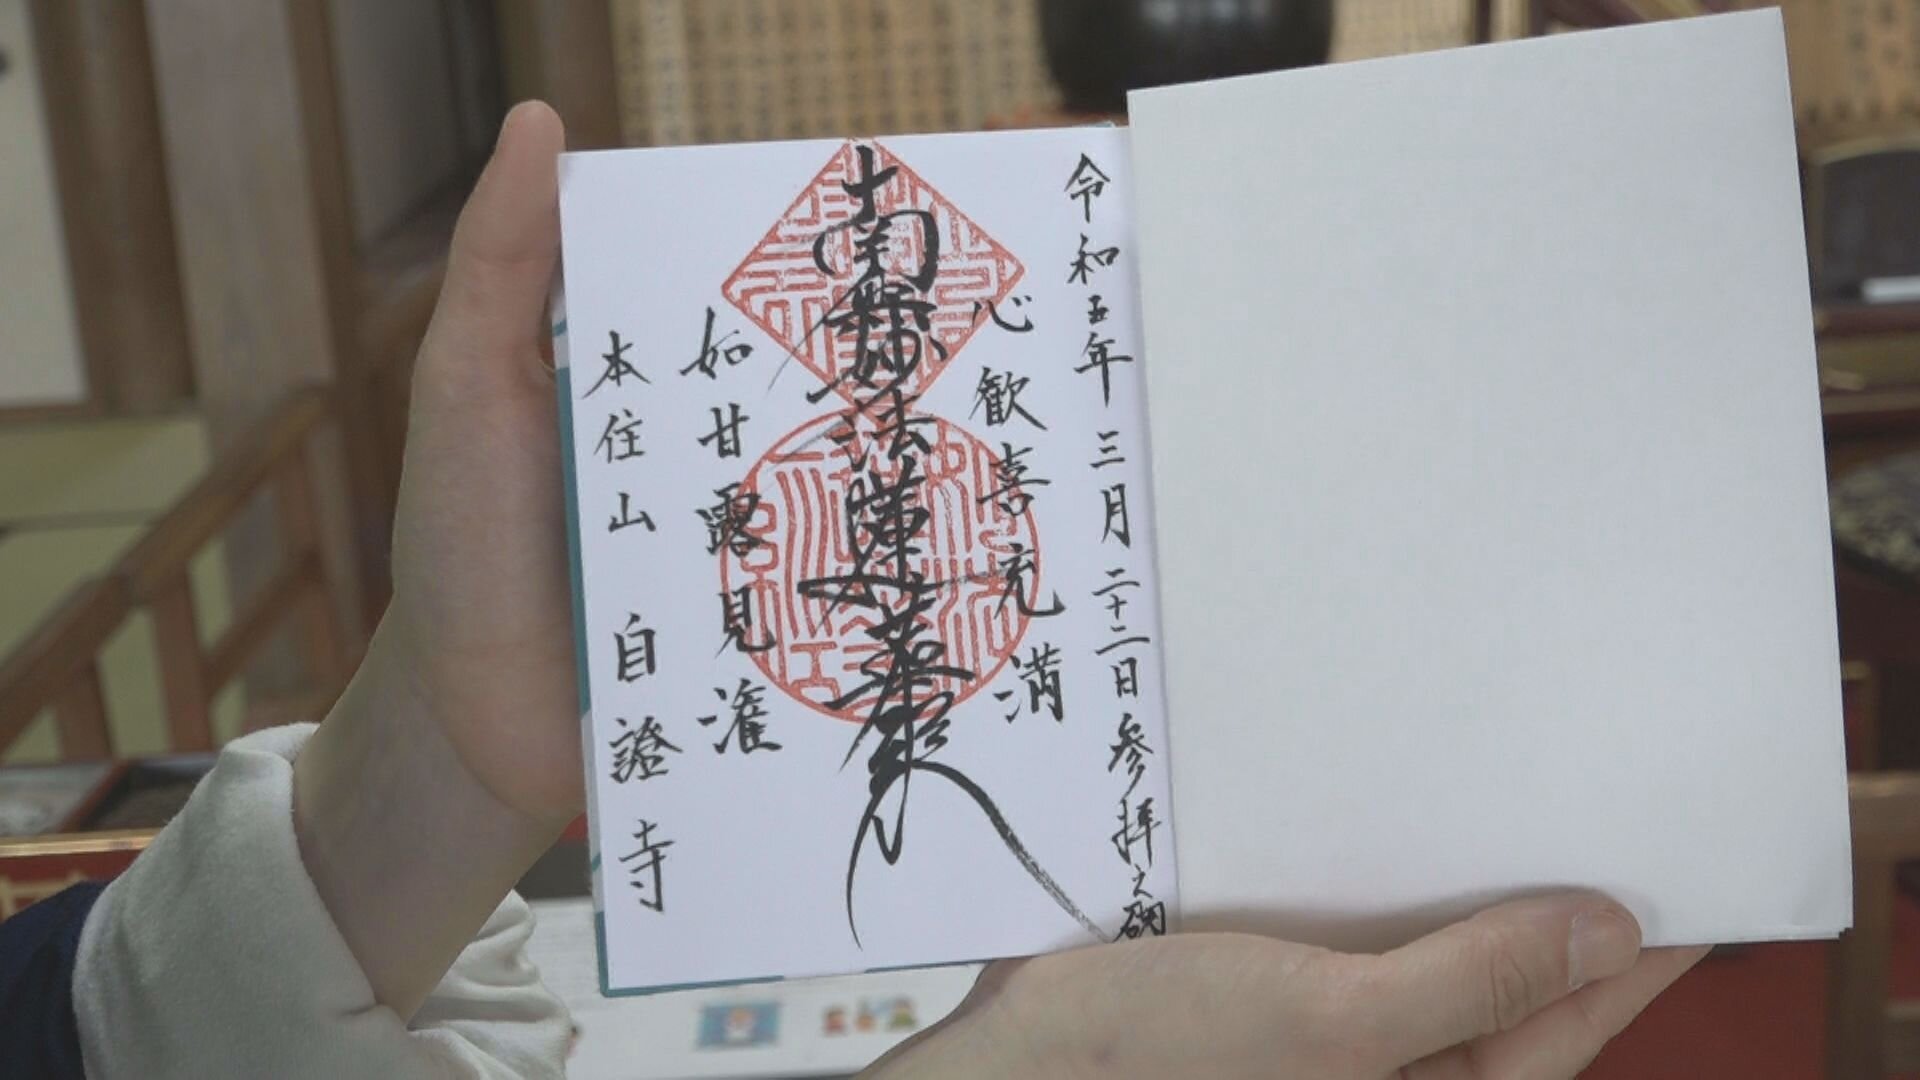 令和五年三月二十二日参拝之砌
心歓喜充満
南無妙法蓮華経
如甘露見灌
本住山 自證寺